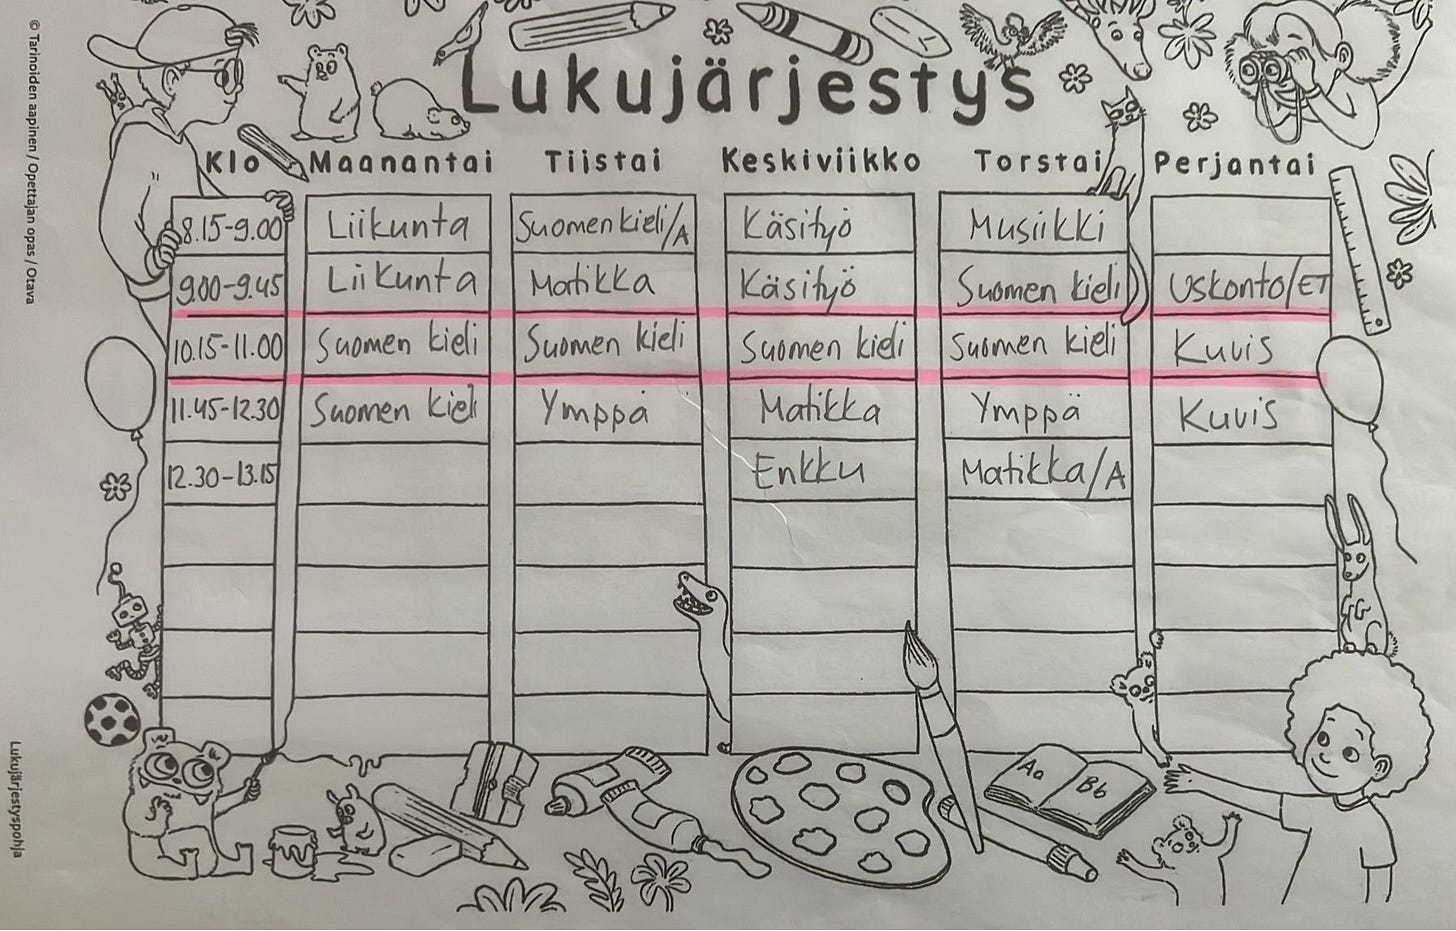 © Tarinoiden aapinen / Opettajan opas / Otava
Lukujärjestys
Klo Maanantai Tiistai Keskiviikko Torstai Perjantai
8.15-9.00 Liikunta Suomen kieli/A Käsityö Musiikki
9.00-9.45 Liikunta Matikka Käsityö Suomen kieli Uskonto/ET
10.15-11.00 Suomen kieli Suomen kieli Suomen kieli Suomen kieli Kuvis
11.45-12.30 Suomen kieli Ymppä Matikka Ymppä Kuvis
12.30-13.15 Enkku Matikka/A
Aa Bb
Lukujärjestyspohja